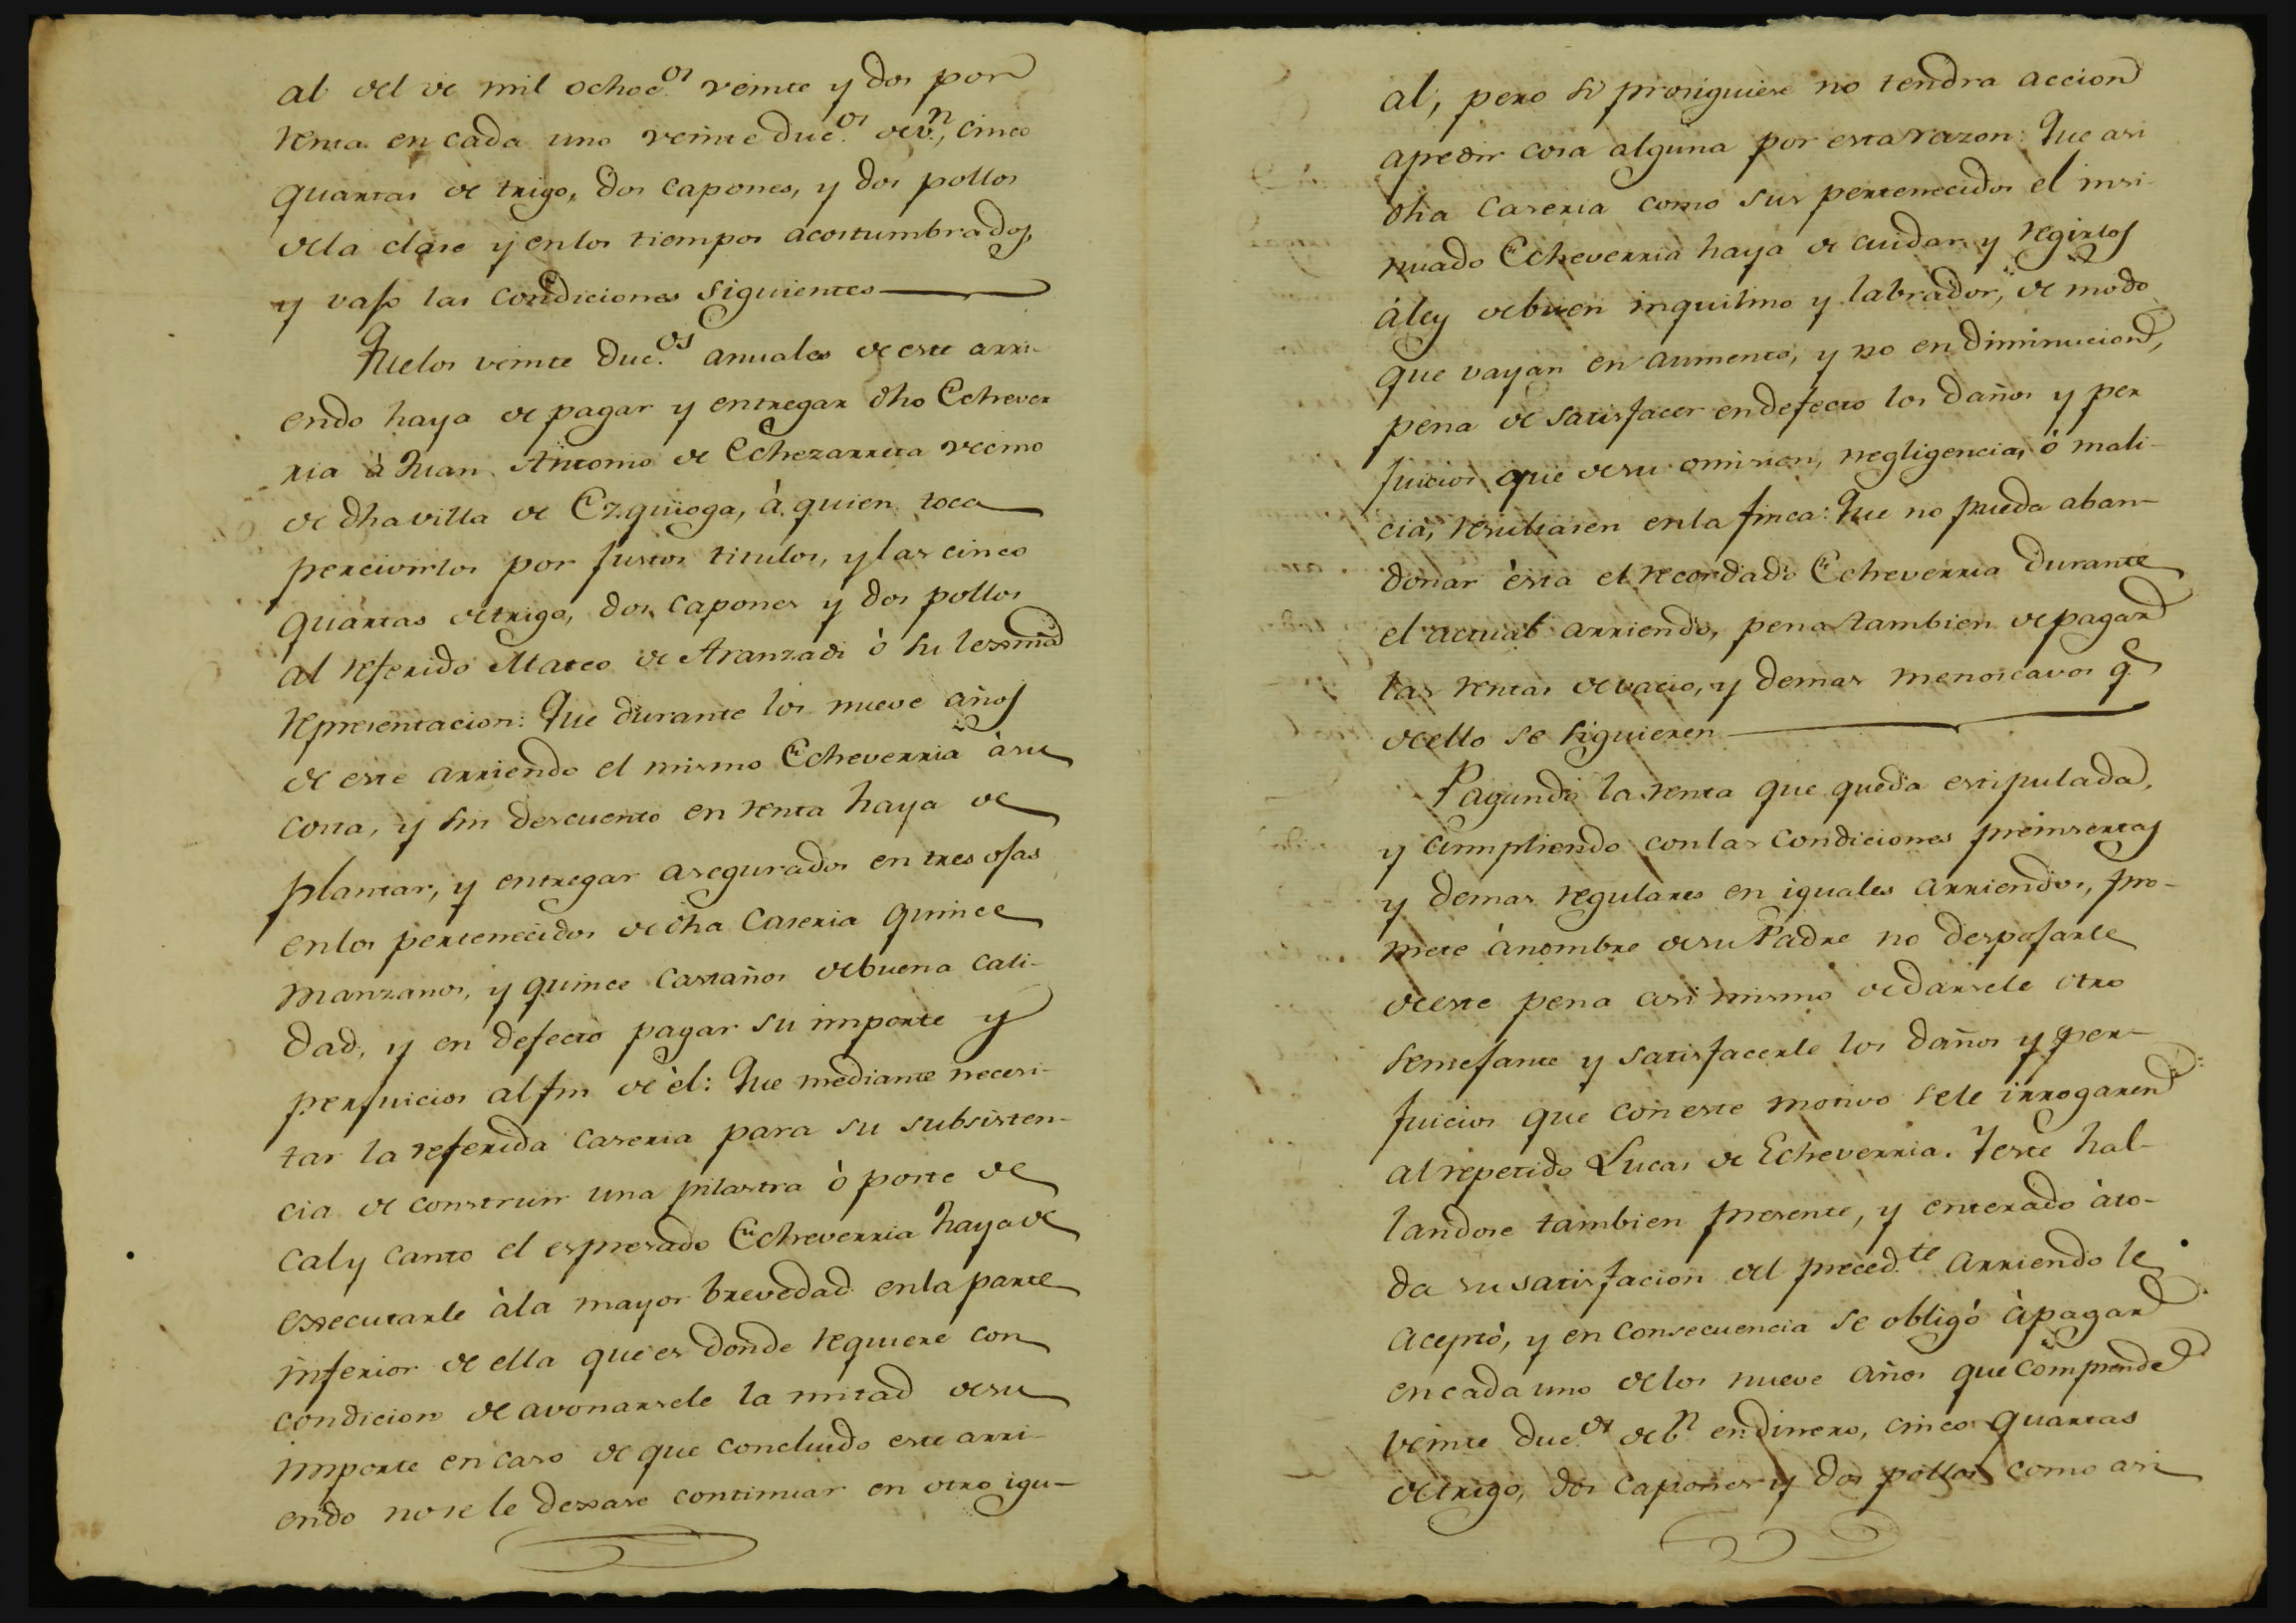 al del de mil ochoc.os veinte y dos por
renta en cada uno veinte duc.os de v.n, cinco
quartas de trigo, dos capones, y dos pollos
dela clase y enlos tiempos acostumbrados,
y vajo las condiciones siguientes
Quelos veinte duc.os anuales de este arri-
endo haya de pagar y entregar dho Echever
ria à Juan Antonio de Echezarreta vecino
de dha villa de Ezquioga, à quien toca
percivirlos por justos titulos, y las cinco
quartas detrigo, dos capones y dos pollos
al referido Mateo de Aranzadi ò su lexma
representacion: Que durante los nueve años
de este arriendo el mismo Echeverria àsu
costa, y sin descuento en renta haya de
plantar, y entregar asegurados en tres ojas
enlos pertenecidos de dha Caseria quince
manzanos, y quince castaños debuena cali-
dad, y en defecto pagar su importe y
perjuicios al fin de èl: Que mediante necesi-
tar la referida caseria para su subsisten-
cia de construir una pilastra ò poste de
cal y canto el espresado Echeverria haya de
executarle àla mayor brevedad enla parte
inferior de ella que es donde requiere con
condicion de avonarsele la mitad desu
importe en caso de que concluido este arri-
endo nosele dexase continuar en otro igu-
al, pero si prosiguiese no tendra accion
apedir cosa alguna por esta razon: Que asi
dha caseria como sus pertenecidos el insi-
nuado Echeverria haya de cuidar y regirlos
àley debuen inquilino y labrador, de modo
que vayan en aumento, y no en diminucion,
pena de satisfacer endefecto los daños y per
juicios que desu omision, negligencia, ò mali-
cia, resultasen enla finca: Que no pueda aban-
donar èsta el recordado Echeverria durante
el actual arriendo, pena tambien depagar
las rentas devacio, y demas menoscavos q.e
deello se siguieren
Pagando la renta que queda estipulada,
y cumpliendo conlas condiciones preinsertas
y demas regulares en iguales arriendos, pro-
mete ànombre desu Padre no despojarle
deeste pena asi mismo dedarsele otro
semejante y satisfacerle los daños y per-
juicios que coneste motivo sele irrogaren
al repetido Lucas de Echeverria. Y este hal-
landose tambien presente, y enterado àto-
da su satisfacion del preced.te arriendo le
aceptò, y en consecuencia se obligò àpagar
encada uno delos nueve años que comprende
veinte duc.os deb.n endinero, cinco quartas
detrigo, dos capones y dos pollos como asi